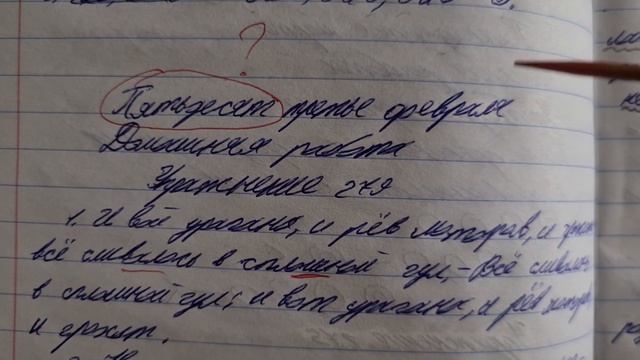 ?
Пятьдесят третье февраля
Домашняя работа
Упражнение 279
1. И вой урагана, и рёв моторов, и грохот
всё слилось в сплошной гул, – Всё слилось
в сплошной гул; и вой урагана, и рёв моторов
и грохот.